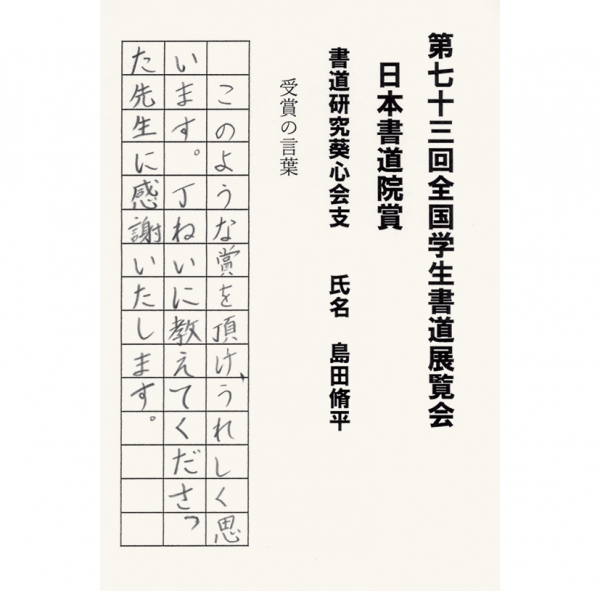 第七十三回全国学生書道展覧会
日本書道院賞
書道研究葵心会支　氏名　島田脩平
受賞の言葉
このような賞を頂け、うれしく思
います。丁ねいに教えてくださっ
た先生に感謝いたします。